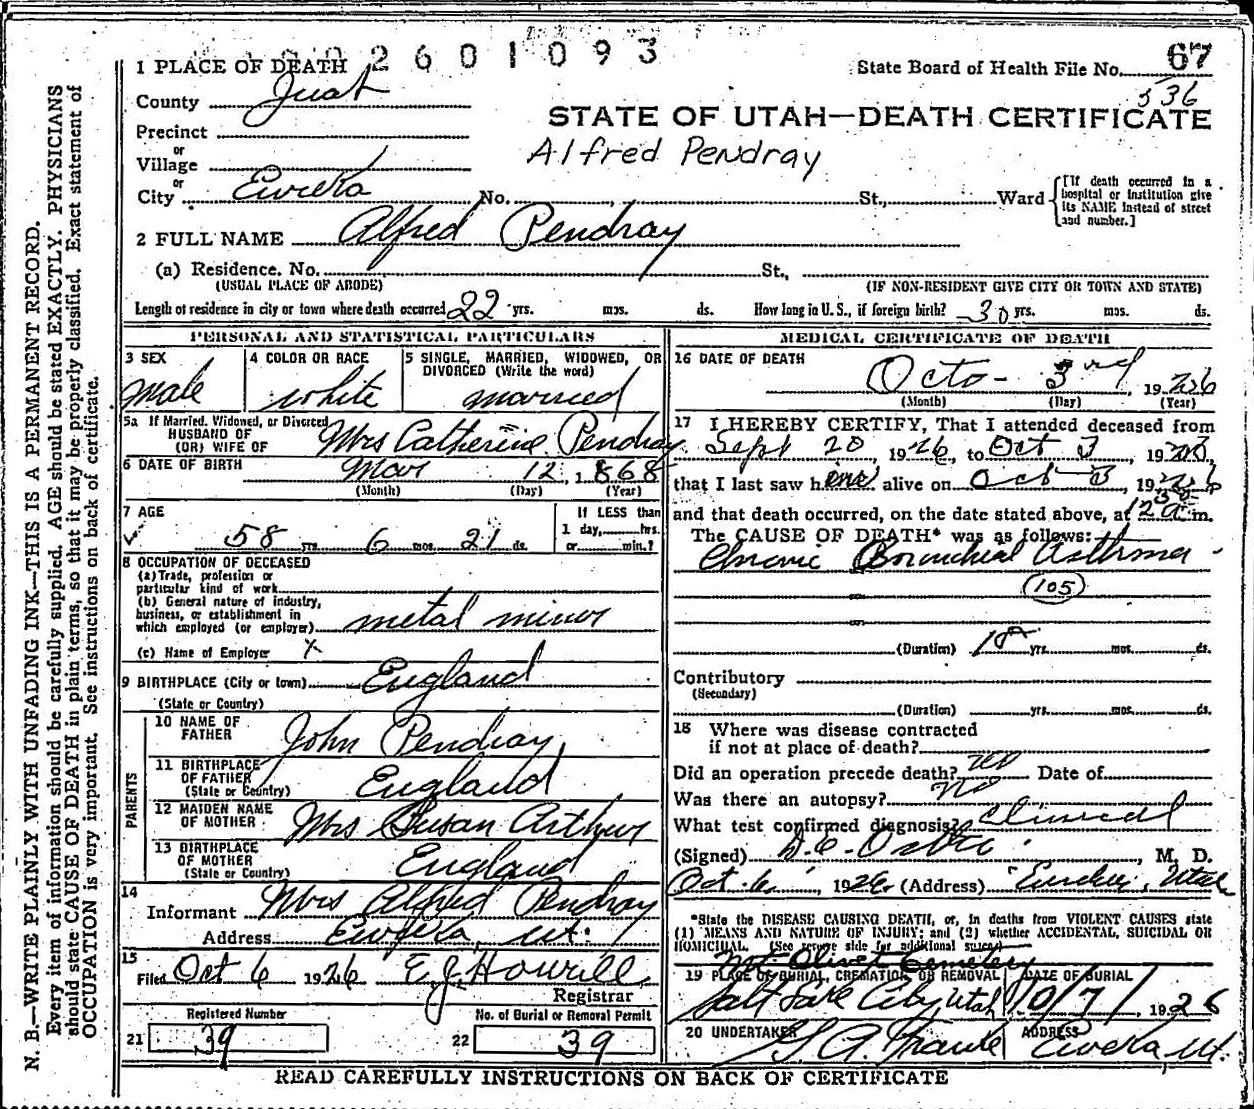 2601093
67
1 PLACE OF DEATH
State Board of Health File No.
536
County Juab
STATE OF UTAH—DEATH CERTIFICATE
Precinct
or
Alfred Pendray
Village
or
City Eureka No. St., Ward
[If death occurred in a
hospital or institution give
its NAME instead of street
and number.]
2 FULL NAME Alfred Pendray
(a) Residence. No. St.,
(USUAL PLACE OF ABODE) (IF NON-RESIDENT GIVE CITY OR TOWN AND STATE)
Length of residence in city or town where death occurred 22 yrs. mos. ds. How long in U.S., if foreign birth? 30 yrs. mos. ds.
PERSONAL AND STATISTICAL PARTICULARS
3 SEX
male
4 COLOR OR RACE
white
5 SINGLE, MARRIED, WIDOWED, OR
DIVORCED (Write the word)
married
5a If Married, Widowed, or Divorced
HUSBAND OF
(OR) WIFE OF
Mrs Catherine Pendray
6 DATE OF BIRTH Mar 12, 1868
(Month) (Day) (Year)
7 AGE
58 yrs. 6 mos. 21 ds.
If LESS than
1 day, hrs.
or min.?
8 OCCUPATION OF DECEASED
(a) Trade, profession or
particular kind of work
(b) General nature of industry,
business, or establishment in
which employed (or employer) metal minor
(c) Name of Employer x
9 BIRTHPLACE (City or town) England
(State or Country)
PARENTS
10 NAME OF
FATHER
John Pendray
11 BIRTHPLACE
OF FATHER
(State or Country)
England
12 MAIDEN NAME
OF MOTHER
Mrs Susan Arthur
13 BIRTHPLACE
OF MOTHER
(State or Country)
England
14
Informant Mrs Alfred Pendray
Address Eureka, Ut.
15
Filed Oct 6 1926 E.J. Howell
Registrar
Registered Number
21 39
No. of Burial or Removal Permit
22 39
MEDICAL CERTIFICATE OF DEATH
16 DATE OF DEATH
Octo- 3rd 1926
(Month) (Day) (Year)
17 I HEREBY CERTIFY, That I attended deceased from
Sept 20 1926, to Oct 3, 192
that I last saw him alive on Oct 3, 1926
and that death occurred, on the date stated above, at 12 30 a. m.
The CAUSE OF DEATH* was as follows:
Chronic Bronchial Asthma
(105)
(Duration) 18 yrs. mos. ds.
Contributory
(Secondary)
(Duration) yrs. mos. ds.
18 Where was disease contracted
if not at place of death?
Did an operation precede death? no Date of
Was there an autopsy? no
What test confirmed diagnosis? Clinical
(Signed) , M. D.
Oct 6, 1926 (Address) Eureka, Utah
*State the DISEASE CAUSING DEATH, or, in deaths from VIOLENT CAUSES state
(1) MEANS AND NATURE OF INJURY; and (2) whether ACCIDENTAL, SUICIDAL OR
HOMICIDAL. (See reverse side for additional space)
Mt Olivet Cemetery
19 PLACE OF BURIAL, CREMATION, OR REMOVAL
Salt Lake City, Utah
DATE OF BURIAL
10/7/ 1926
20 UNDERTAKER
ADDRESS
Eureka Ut.
READ CAREFULLY INSTRUCTIONS ON BACK OF CERTIFICATE
N. B.—WRITE PLAINLY WITH UNFADING INK—THIS IS A PERMANENT RECORD.
Every item of information should be carefully supplied. AGE should be stated EXACTLY. PHYSICIANS
should state CAUSE OF DEATH in plain terms, so that it may be properly classified. Exact statement of
OCCUPATION is very important. See instructions on back of certificate.